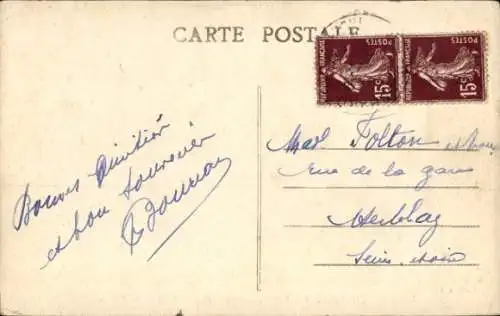 CARTE POSTALE
POSTES
REPUBLIQUE FRANÇAISE
15c
POSTES
REPUBLIQUE FRANÇAISE
15c
Bonnes Amitiés
et bon souvenir
Mad. Folton et
rue de la gare
Herblay
Seine et Oise